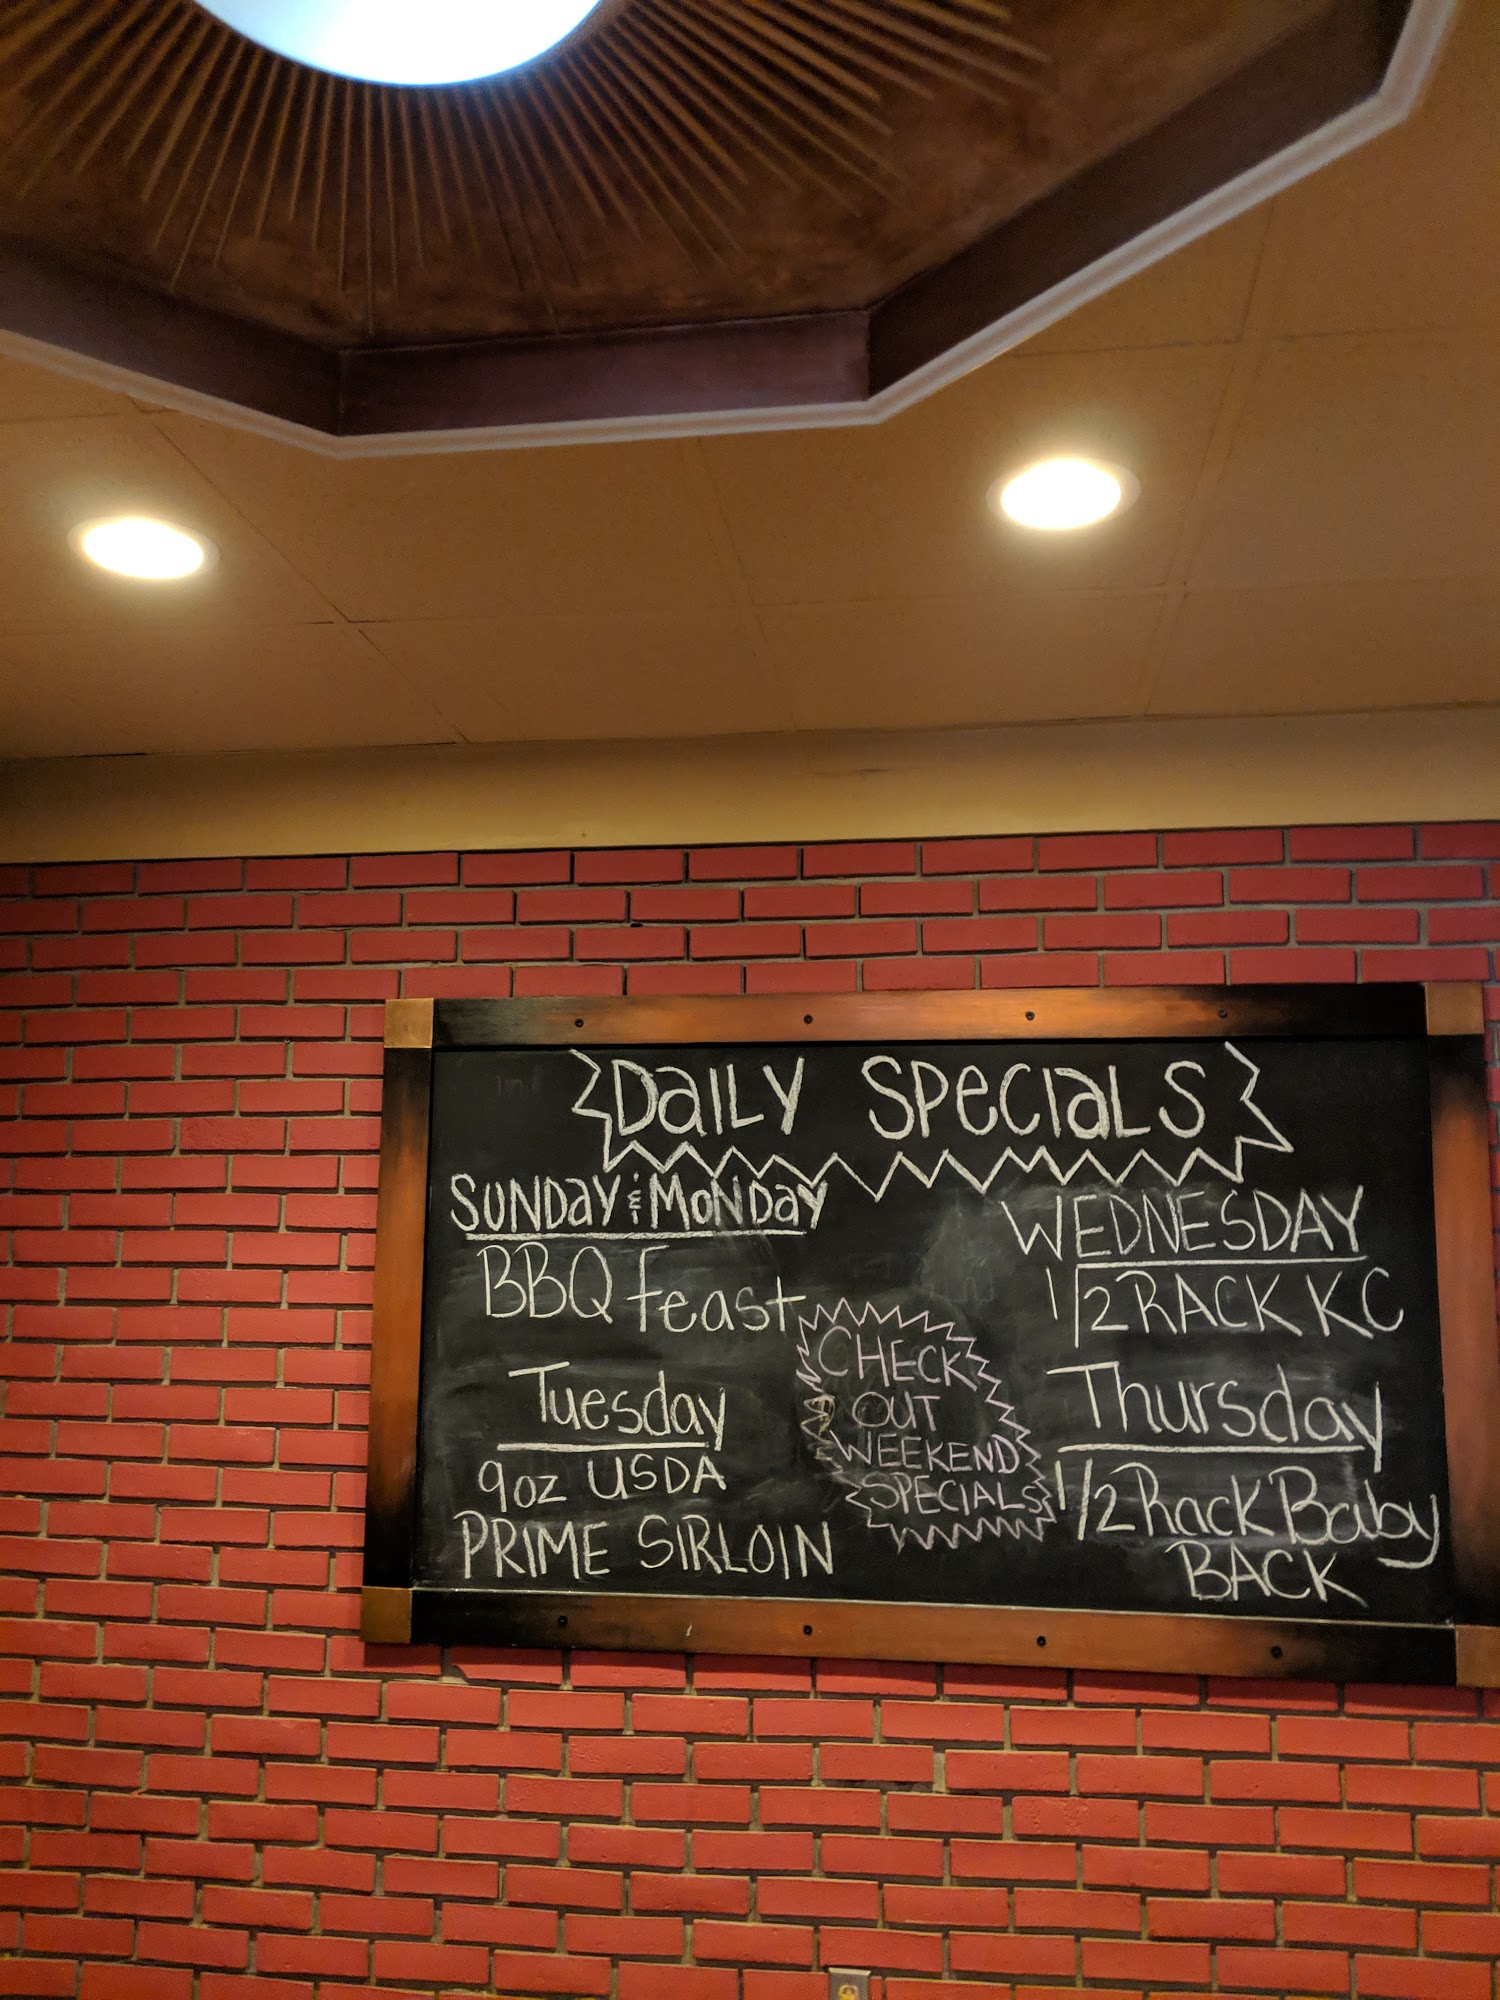 DAILY SPECIALS
SUNDAY & MONDAY
BBQ Feast
Tuesday
9oz USDA
PRIME SIRLOIN
CHECK
OUT
WEEKEND
SPECIALS
WEDNESDAY
1/2 RACK KC
Thursday
1/2 Rack Baby
BACK